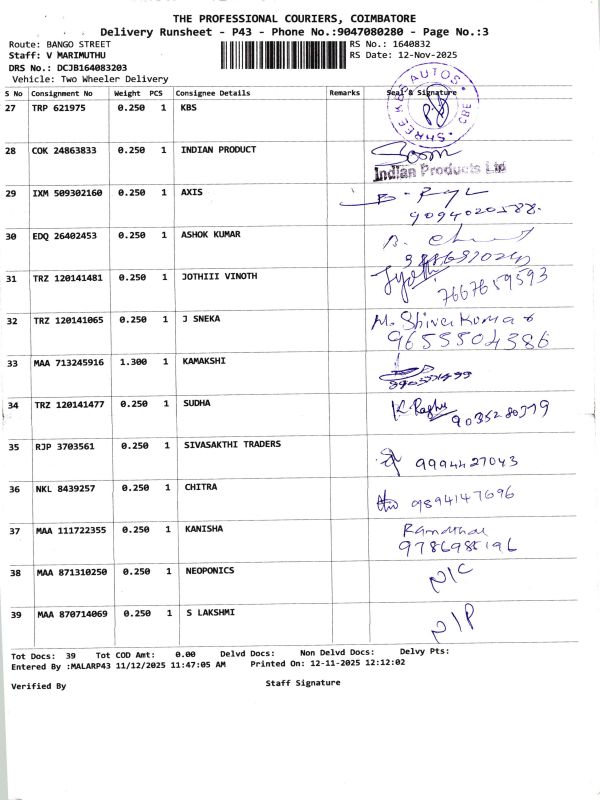 THE PROFESSIONAL COURIERS, COIMBATORE
Delivery Runsheet - P43 - Phone No.:9047080280 - Page No.:3
Route: BANGO STREET RS No.: 1640832
Staff: V MARIMUTHU RS Date: 12-Nov-2025
DRS No.: DCJB164083203
Vehicle: Two Wheeler Delivery
S No Consignment No Weight PCS Consignee Details Remarks Seal & Signature
SHREE KBS AUTOS CBE
27 TRP 621975 0.250 1 KBS
28 COK 24863833 0.250 1 INDIAN PRODUCT
Indian Products Ltd
29 IXM 509302160 0.250 1 AXIS
9094020588.
30 EDQ 26402453 0.250 1 ASHOK KUMAR
31 TRZ 120141481 0.250 1 JOTHIII VINOTH Jyothi
7667659593
32 TRZ 120141065 0.250 1 J SNEKA M. Shiva Kumar
9655504386
33 MAA 713245916 1.300 1 KAMAKSHI
34 TRZ 120141477 0.250 1 SUDHA K. Raghu
35 RJP 3703561 0.250 1 SIVASAKTHI TRADERS
9994427043
36 NKL 8439257 0.250 1 CHITRA
9894147696
37 MAA 111722355 0.250 1 KANISHA
9786985196
38 MAA 871310250 0.250 1 NEOPONICS N/C
39 MAA 870714069 0.250 1 S LAKSHMI N/P
Tot Docs: 39 Tot COD Amt: 0.00 Delvd Docs: Non Delvd Docs: Delvy Pts:
Entered By :MALARP43 11/12/2025 11:47:05 AM Printed On: 12-11-2025 12:12:02
Verified By Staff Signature